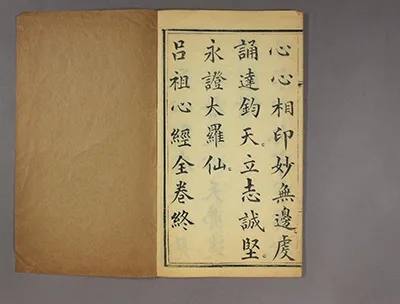 心心相印妙無邊。虔
誦達鈞天。立志誠堅。
永證大羅仙。
呂祖心經全卷終